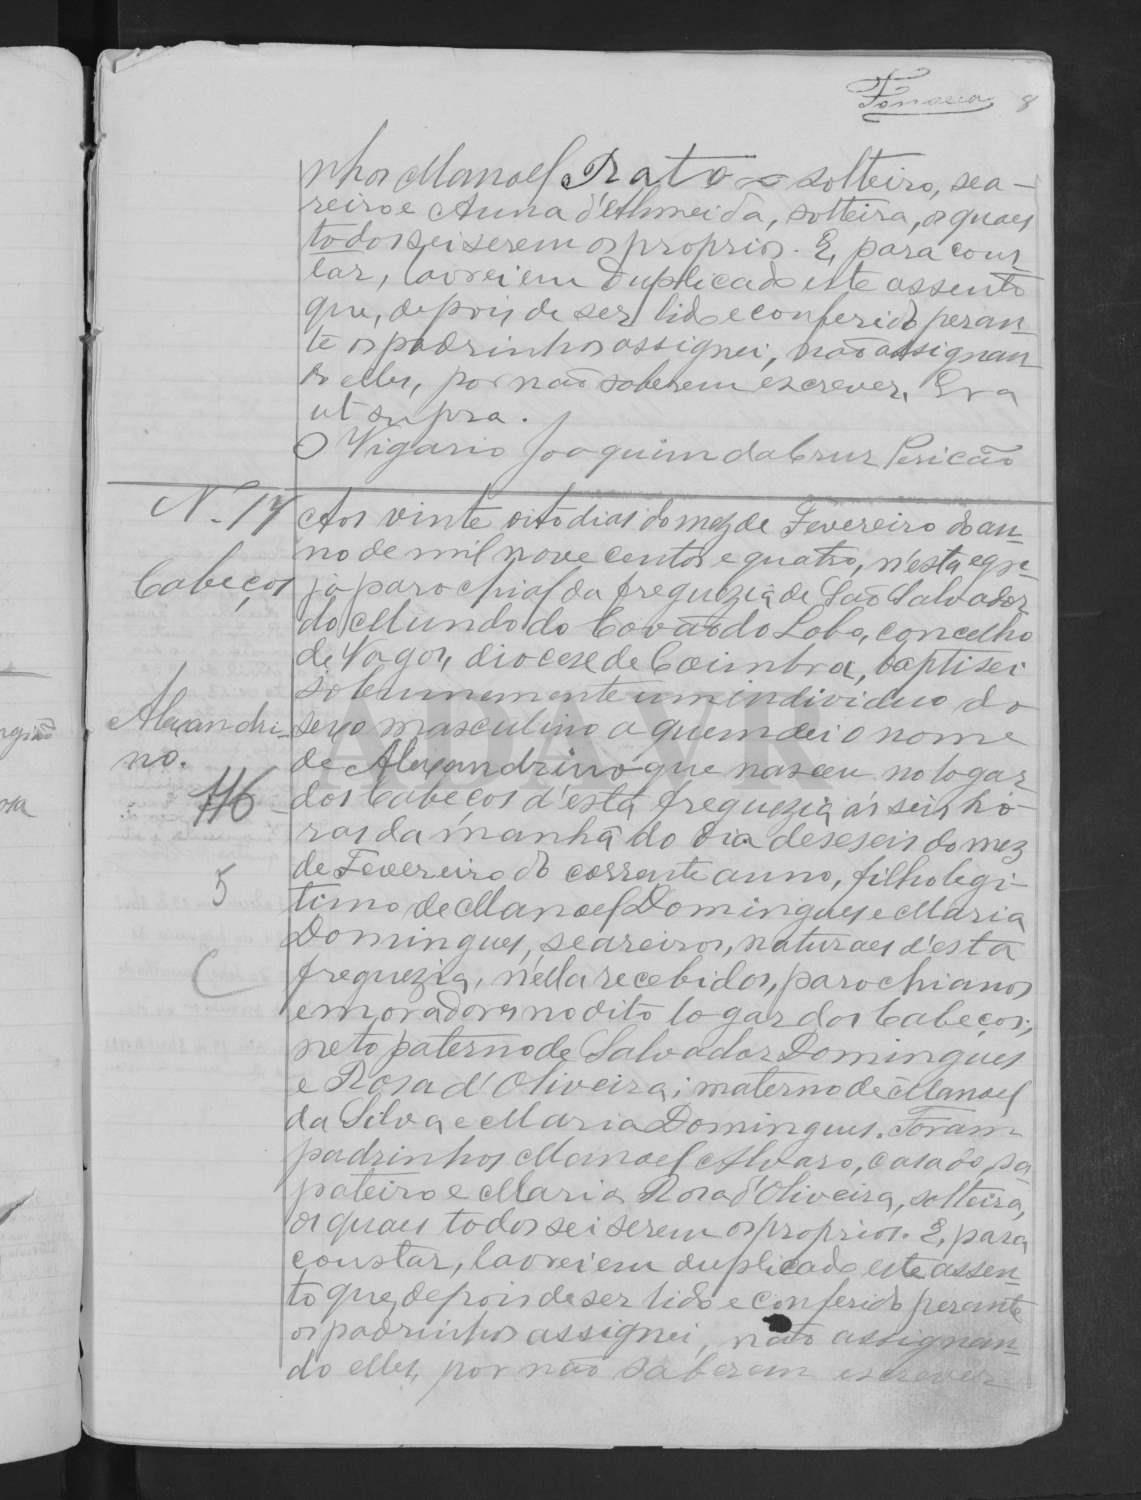 Fonseca 8
nhos Manoel Rato solteiro, sea-
reiro e Anna d'Almeida, solteira, os quaes
todos sei serem os proprios. E, para cons
tar, lavrei em duplicado este assento
que, depois de ser lido e conferido peran
te os padrinhos assignei, não assignan
do elles, por não saberem escrever. Era
ut supra.
O Vigario Joaquim da Cruz Pericão
N.º 17
Cabeços
Alexandri-
no.
116
5
C
Aos vinte oito dias do mez de Fevereiro do an-
no de mil nove centos e quatro, n'esta egre-
ja parochial da freguezia de São Salvador
do Mundo do Covão do Lobo, concelho
de Vagos, diocese de Coimbra, baptisei
solemnemente um individuo do
sexo masculino a quem dei o nome
de Alexandrino que nasceu no logar
dos Cabeços d'esta freguezia ás seis ho-
ras da manhã do dia deseseis do mez
de Fevereiro do corrente anno, filho legi-
timo de Manoel Domingues e Maria
Domingues, seareiros, naturaes d'esta
freguezia, n'ella recebidos, parochianos
e moradores no dito logar dos Cabeços;
neto paterno de Salvador Domingues
e Rosa d'Oliveira; materno de Manoel
da Silva e Maria Domingues. Foram
padrinhos Manoel Alvaro, casado, sa-
pateiro e Maria Rosa d'Oliveira, solteira,
os quaes todos sei serem os proprios. E, para
constar, lavrei em duplicado este assen-
to que, depois de ser lido e conferido perante
os padrinhos assignei, não assignan-
do elles, por não saberem escrever
ADAVR